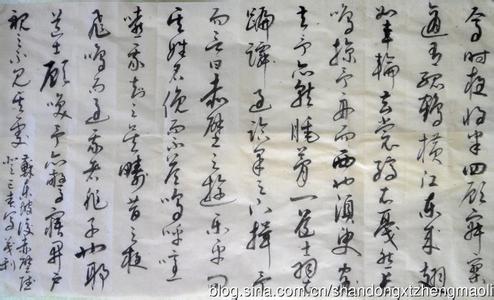 焉時夜將半四顧寂寥
適有孤鶴橫江東來翅
如車輪玄裳縞衣戛然長
鳴掠予舟而西也須臾客
去予亦就睡夢一道士羽
蹁躚過臨皋之下揖予
而言曰赤壁之遊樂乎問
其姓名俛而不答嗚呼噫
嘻我知之矣疇昔之夜
飛鳴而過我者非子也耶
道士顧笑予亦驚寤開戶
視之不見其處
蘇東坡後赤壁賦
blog.sina.com.cn/shandongxtzhengmaoli